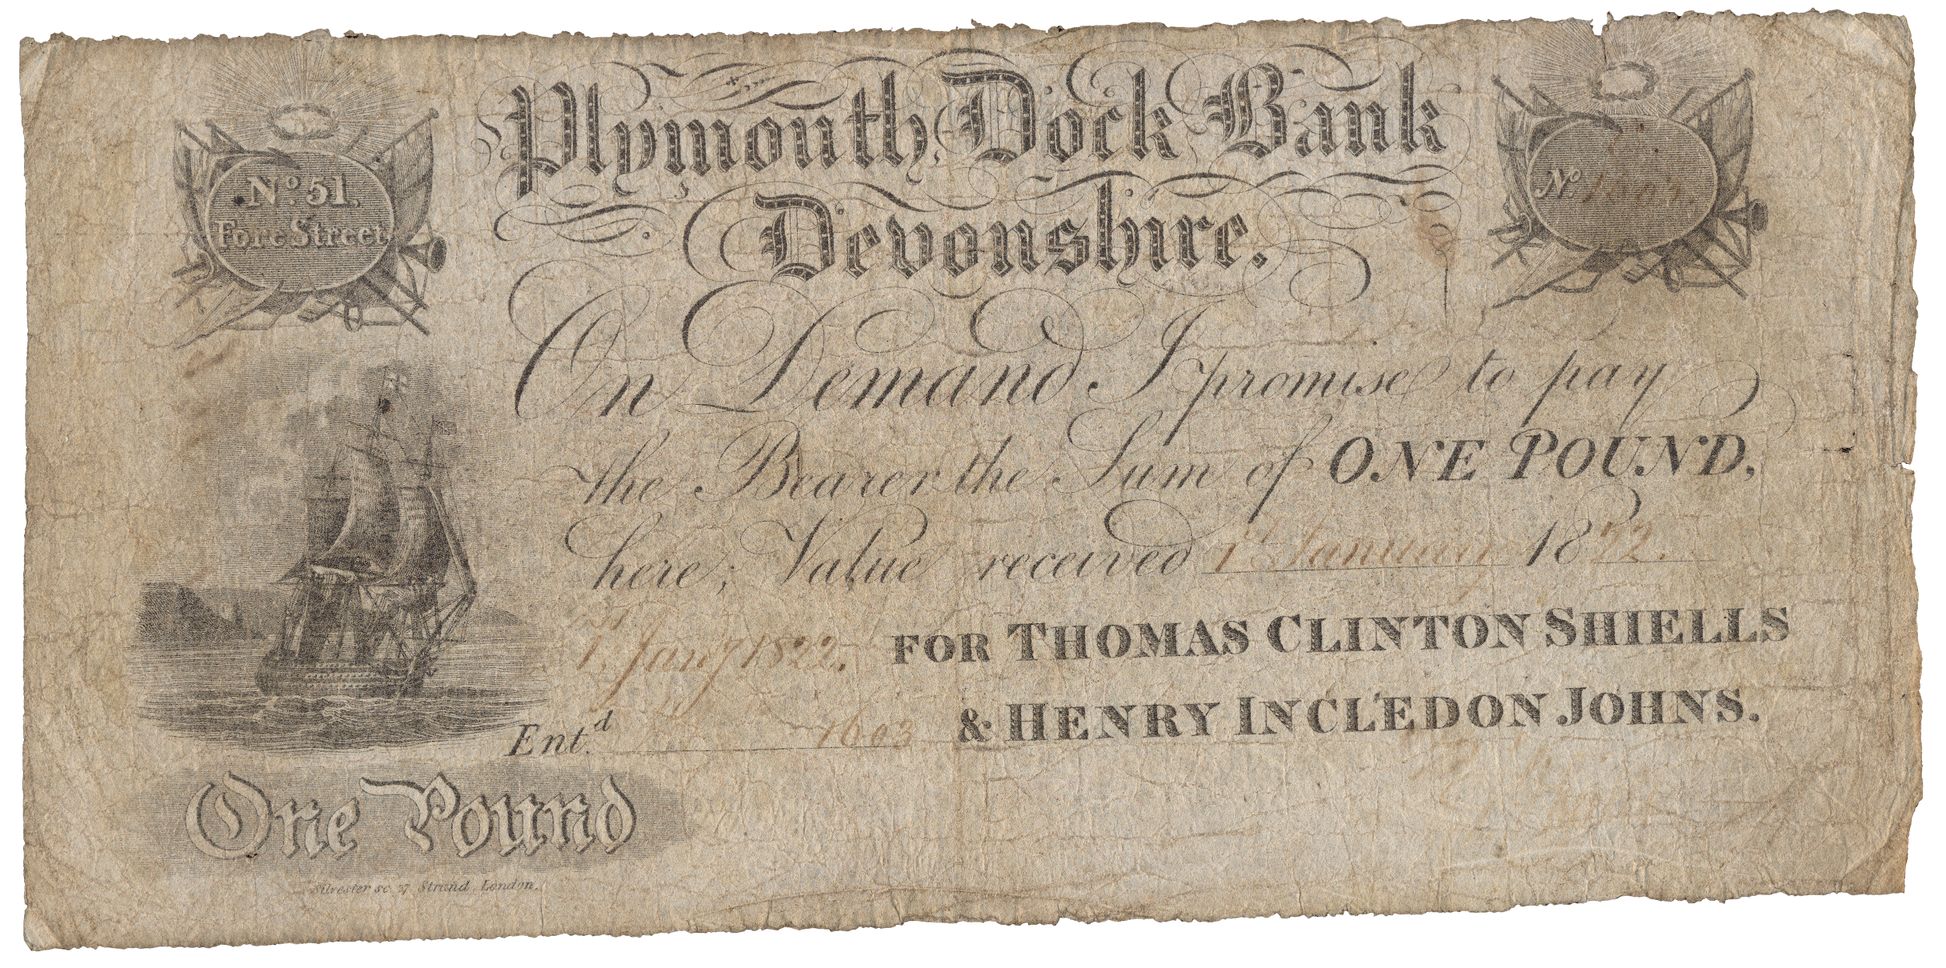 Plymouth Dock Bank
Devonshire.
No. 51.
Fore Street
No 1603
On Demand I promise to pay
the Bearer the Sum of ONE POUND,
here; Value received 1st January 1822.
1st Jany 1822.
FOR THOMAS CLINTON SHIELLS
Entd. 1603
& HENRY INCLEDON JOHNS.
One Pound
Silvester sc. 27 Strand, London.